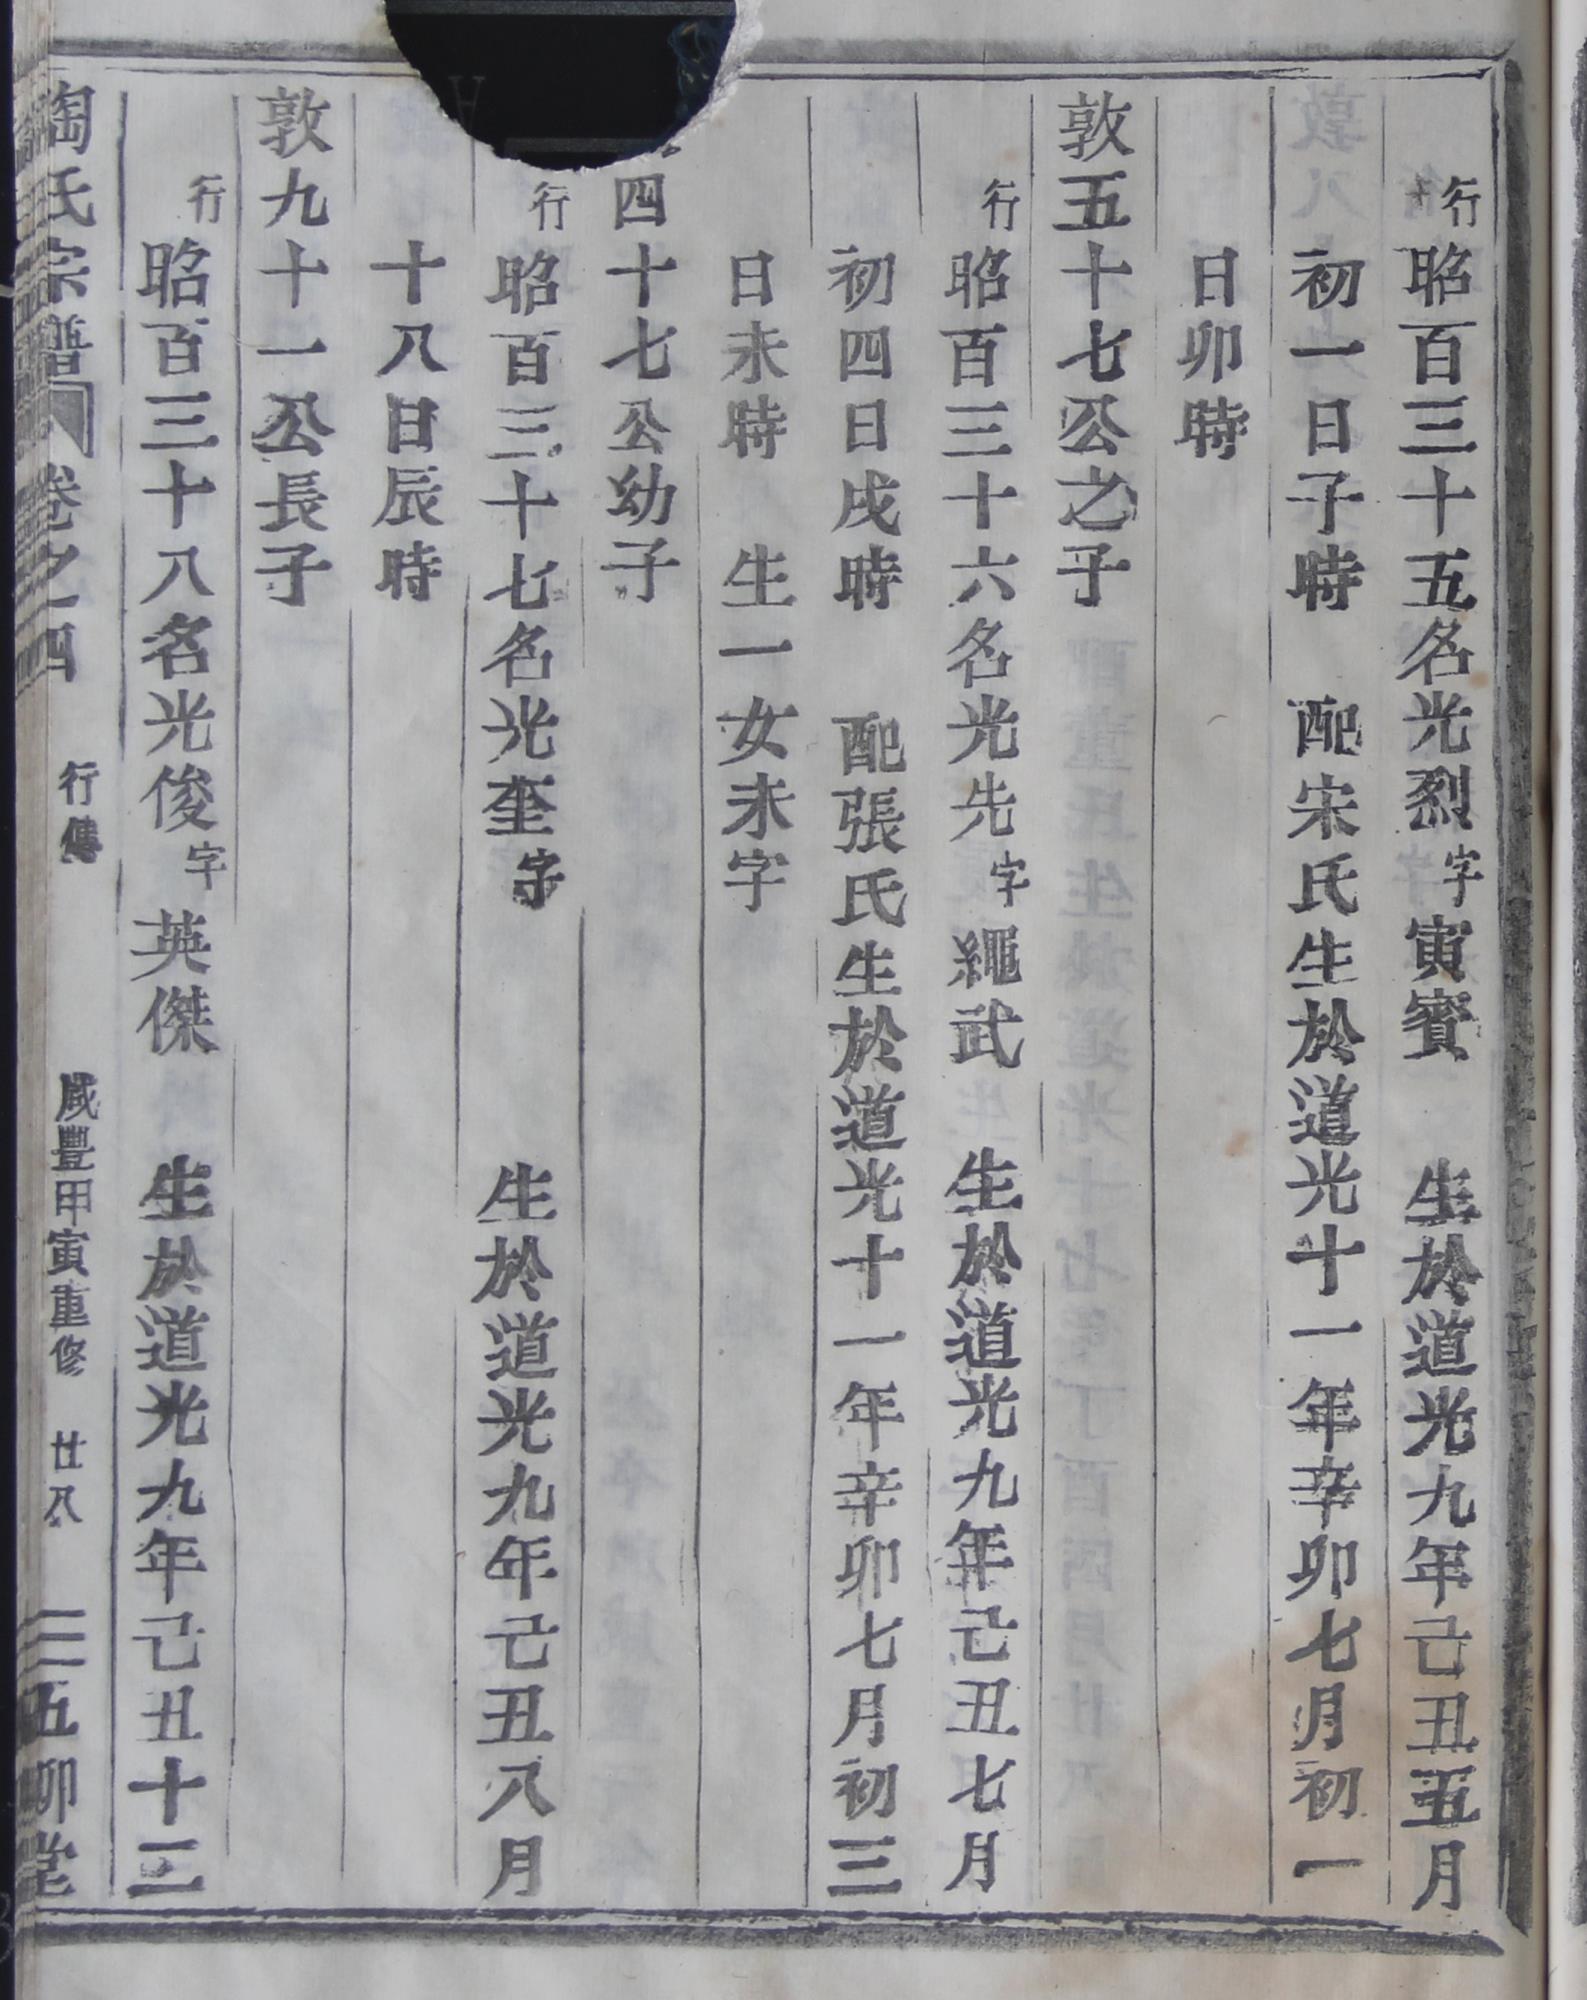 行昭百三十五名光烈字寅賓　生於道光九年己丑五月
初一日子時　配宋氏生於道光十一年辛卯七月初一
日卯時
敦五十七公之子
行昭百三十六名光先字繩武　生於道光九年己丑七月
初四日戌時　配張氏生於道光十一年辛卯七月初三
日未時　生一女未字
四十七公幼子
行昭百三十七名光奎字　生於道光九年己丑八月
十八日辰時
敦九十一公長子
行昭百三十八名光俊字英傑　生於道光九年己丑十二
陶氏宗譜　卷之四　行傳　咸豐甲寅重修　廿八　五柳堂